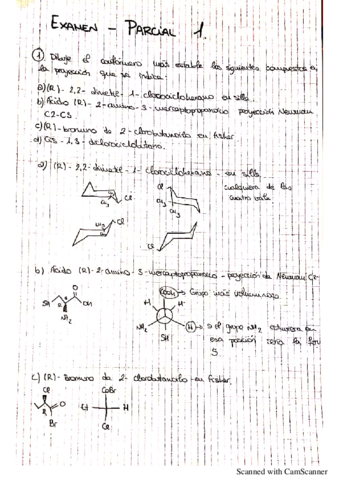 EXAMEN - PARCIAL 1.
① Dibuje el confórmero más estable los siguientes compuestos en
la proyección que se indica:
a) (R) - 2,2 - dimetil - 1 - clorociclohexano en silla.
b) Ácido (R) - 2 - amino - 3 - mercaptopropanoico proyección Newman
C2-C3
c) (R) - bromuro de 2 - clorobutanoilo en Fisher
d) Cis - 1,3 -
a) (R) - 2,2 - dimetil - 1 - clorociclohexano - en silla
Cl
CH3
CH3
Cl
CH3
CH3
cualquiera de las
cuatro vale
Cl
Cl
b) Ácido (R) - 2 - amino - 3 - mercaptopropanoico - proyección de Newman C2-
SH
O
OH
R
NH2
COOH → Grupo más voluminoso
H
H
NH2
H → si el grupo NH2 estuviera en
esa posición sería la
SH
S.
c) (R) - Bromuro de 2 - clorobutanoilo en fisher.
Cl
O
R
Br
COBr
H
Cl
Scanned with CamScanner